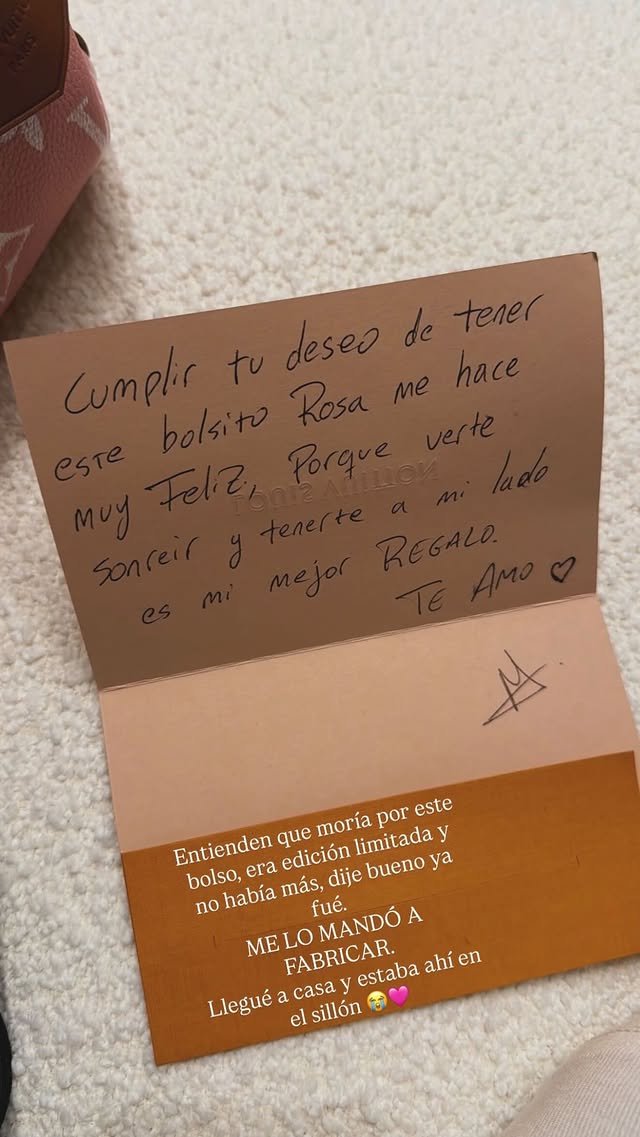 Cumplir tu deseo de tener
este bolsito Rosa me hace
muy Feliz, Porque verte
sonreir y tenerte a mi lado
es mi mejor REGALO.
TE AMO ♡
LOUIS VUITTON
M.
Entienden que moría por este
bolso, era edición limitada y
no había más, dije bueno ya
fué.
ME LO MANDÓ A
FABRICAR.
Llegué a casa y estaba ahí en
el sillón 😭💖